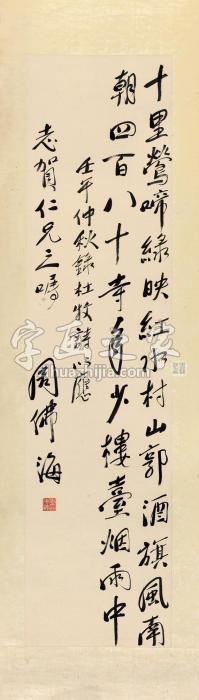 十里鶯啼緑映紅水村山郭酒旗風南
朝四百八十寺多少樓臺烟雨中
壬午仲秋錄杜牧詩以應
志賀仁兄之囑
周佛海
字画之家
huashijia.com